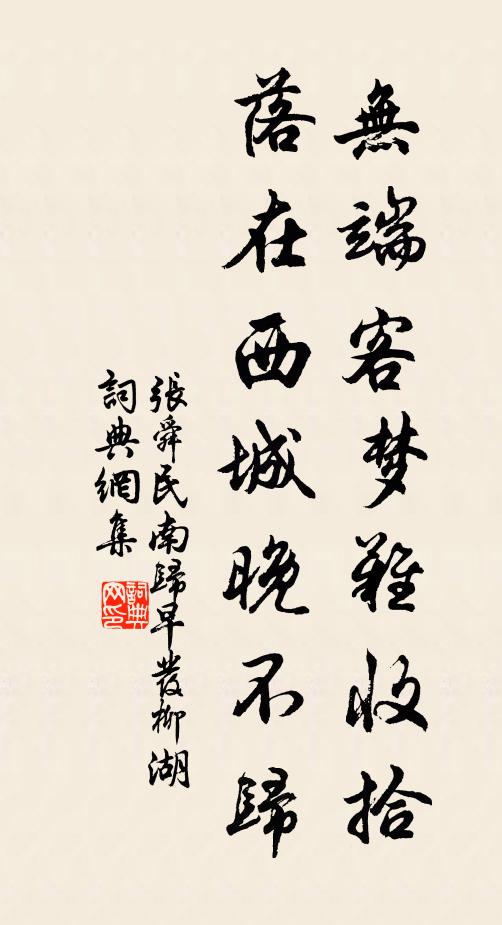 無端客梦難收拾
落在西城晚不歸
張舜民南歸早發柳湖
詞典網集
詞典
网印